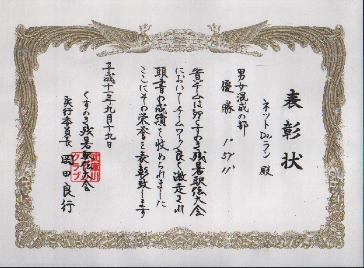 表彰状
ネットDeラン 殿
男女混成の部
優勝 1°57'11"
貴チームは印くすのき残暑駅伝大会
においてチームワーク良く激走され
頭書の成績を收められました
ここにその栄誉を表彰致します
平成十三年九月十九日
くすのき残暑駅伝大会
実行委員長 岡田良行